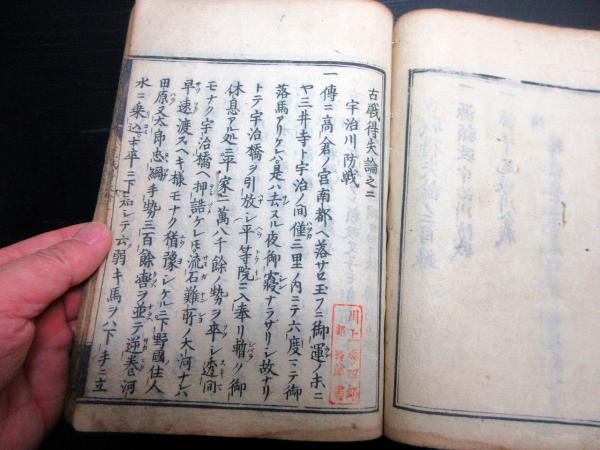 古戰得失論之二
宇治川防戦
一傳ニ高倉ノ宮南都ヘ落サセ玉フニ御運ノホニ
ヤ三井寺ト宇治ノ間僅三里ノ内ニテ六度マテ御
落馬アリケル是ハ去ヌル夜御寢ナラサリシ故ナリ
トテ宇治橋ヲ引放シ平等院ニ入奉リ暫ク御
休息アル処ニ平家二萬八千餘ノ勢ヲ卒シ透間
モナク宇治橋ヘ押詰シトモ流石難所ノ大河ナレハ
早速渡スヘキ様モナク猶豫シケルニ下野國住人
田原又太郎忠綱手勢三百餘轡ヲ並テ逆巻河
水ニ乗込士卒ニ下知シテ云弱キ馬ヲハ下手ニ立
川上